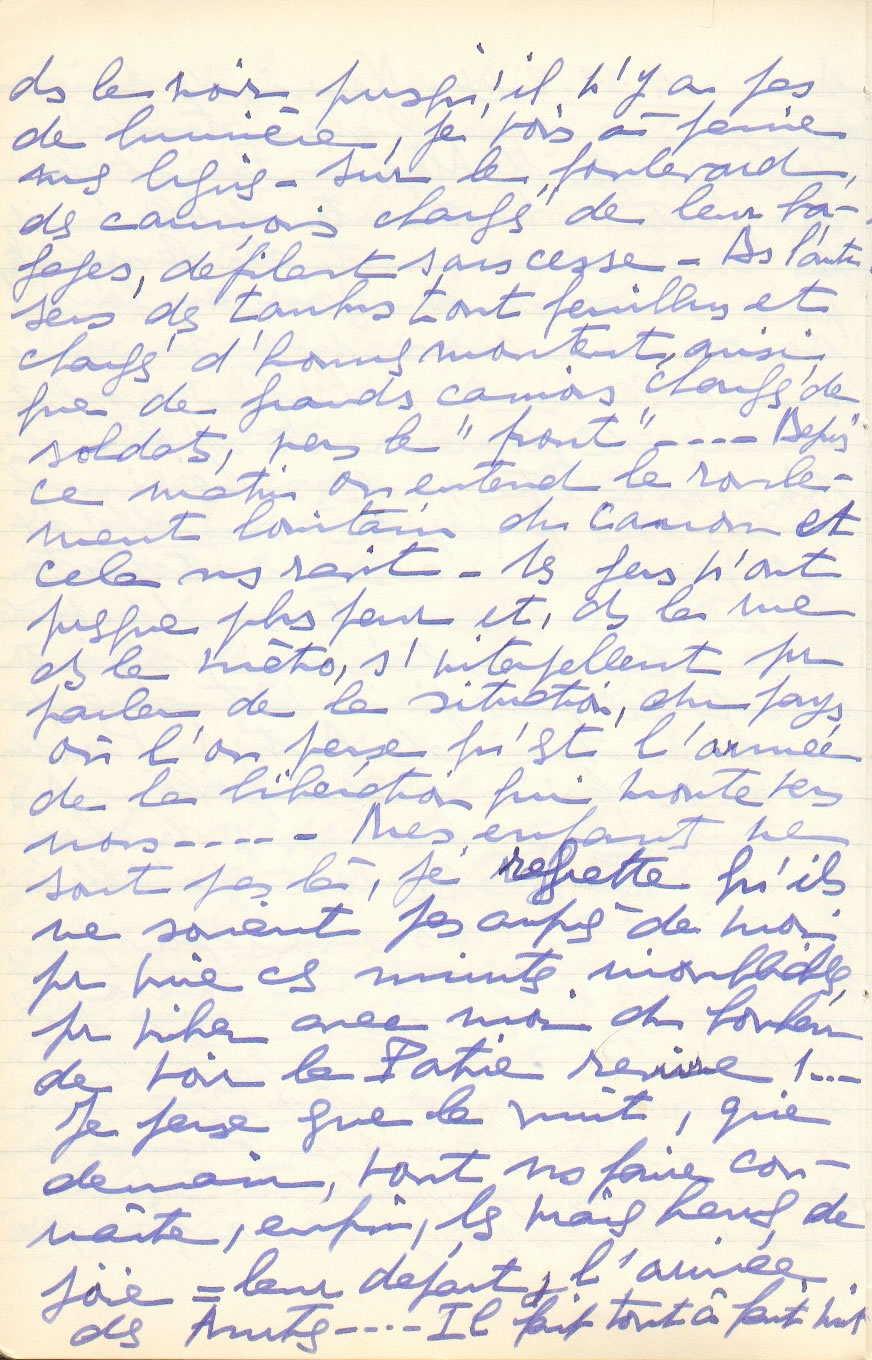 ds le noir puisqu'il n'y a pas
de lumière, je vois à peine
mes lignes - Sur le boulevard,
ds camions chargés de leur ba-
gages, défilent sans cesse - Ds l'autre
sens ds tanks tout feuillus et
chargés d'hommes montent, ainsi
que de grands camions chargés de
soldats, vers le "front" ---- Depuis
ce matin on entend le roule-
ment lointain du canon et
cela ns ravit - Ls gens n'ont
presque plus peur et, ds la rue
ds le métro, s'interpellent pr
parler de la situation, du pays
où l'on pense qu'est l'armée
de la libération qui monte vers
nous ----- Mes enfants ne
sont pas là, je regrette qu'ils
ne soient pas auprès de moi
pr vivre cs minutes inoubliables,
pr vibrer avec moi du bonheur
de voir la Patrie revivre !...
Je pense que la nuit, que
demain, vont ns faire con-
naître, enfin, ls vrais heures de
joie = leur départ, l'arrivée
ds Amis ---- Il fait tout à fait nuit